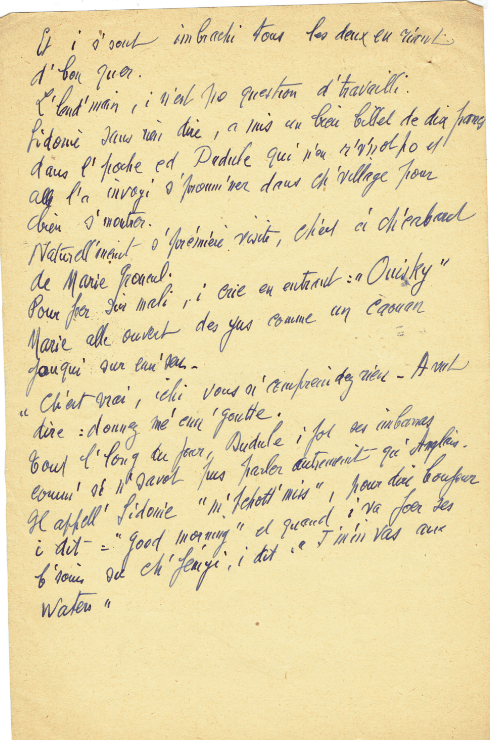 Et i s'sont imbrachi tous les deux en riant
d'bon quer.
L'lend'main, i n'est po question d'travailli.
Sidonie sans rien dire, a mis un bieu billet de dix francs
dans l'poche ed Dudule qui n'en r'v'not po et
alle l'a invoyi s'prom'ner dans ch'village pour
bien s'montrer.
Naturell'ment s'première visite, ch'est à ch'cabaret
de Marie
Pour foer sin mali, i crie en entrant : "Ouisky"
Marie alle ouvert des yus comme un caouan
jouqui sur enn'
"Ch'est vrai, ichi vous n'comprendez rien - A vut
dire : donnez mé einn' goutte.
Tout l'long du jour, Dudule i fot ses imbarras
comm' si n'savot pus parler autrement qu'Anglais.
Il appell' Sidonie "m'tchott' miss", pour dire bonjour
i dit = "good morning" et quand i va foer ses
b'soins su ch'fémyi, i dit "J'm'in vas aux
Waters"